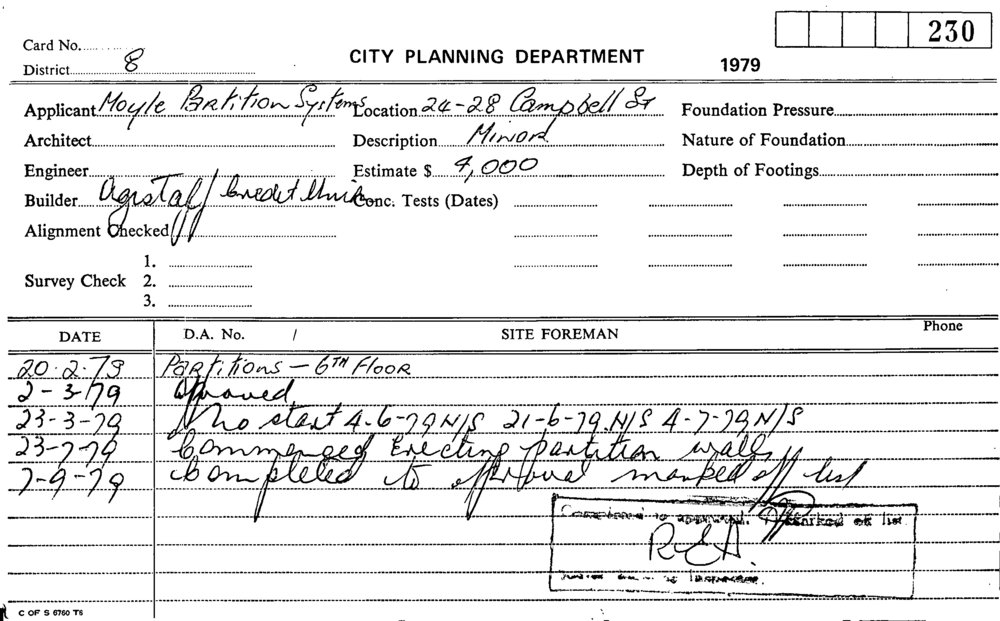 230
Card No.
District 8
CITY PLANNING DEPARTMENT
1979
Applicant Moyle Partition Systems Location 24-28 Campbell St Foundation Pressure
Architect Description Minor Nature of Foundation
Engineer Estimate $ 4,000 Depth of Footings
Builder Agstaff Credit Union Conc. Tests (Dates)
Alignment Checked
1.
Survey Check 2.
3.
DATE D.A. No. / SITE FOREMAN Phone
20.2.79 Partitions - 6TH Floor
2-3-79 Approved
23-3-79 No start 4-6-79 N/S 21-6-79 N/S 4-7-79 N/S
23-7-79 Commenced Erecting partition walls
7-9-79 Completed to approval marked off list
Completed to approval. Marked off list.
R.E.A.
Building Inspector.
C OF S 6760 T6